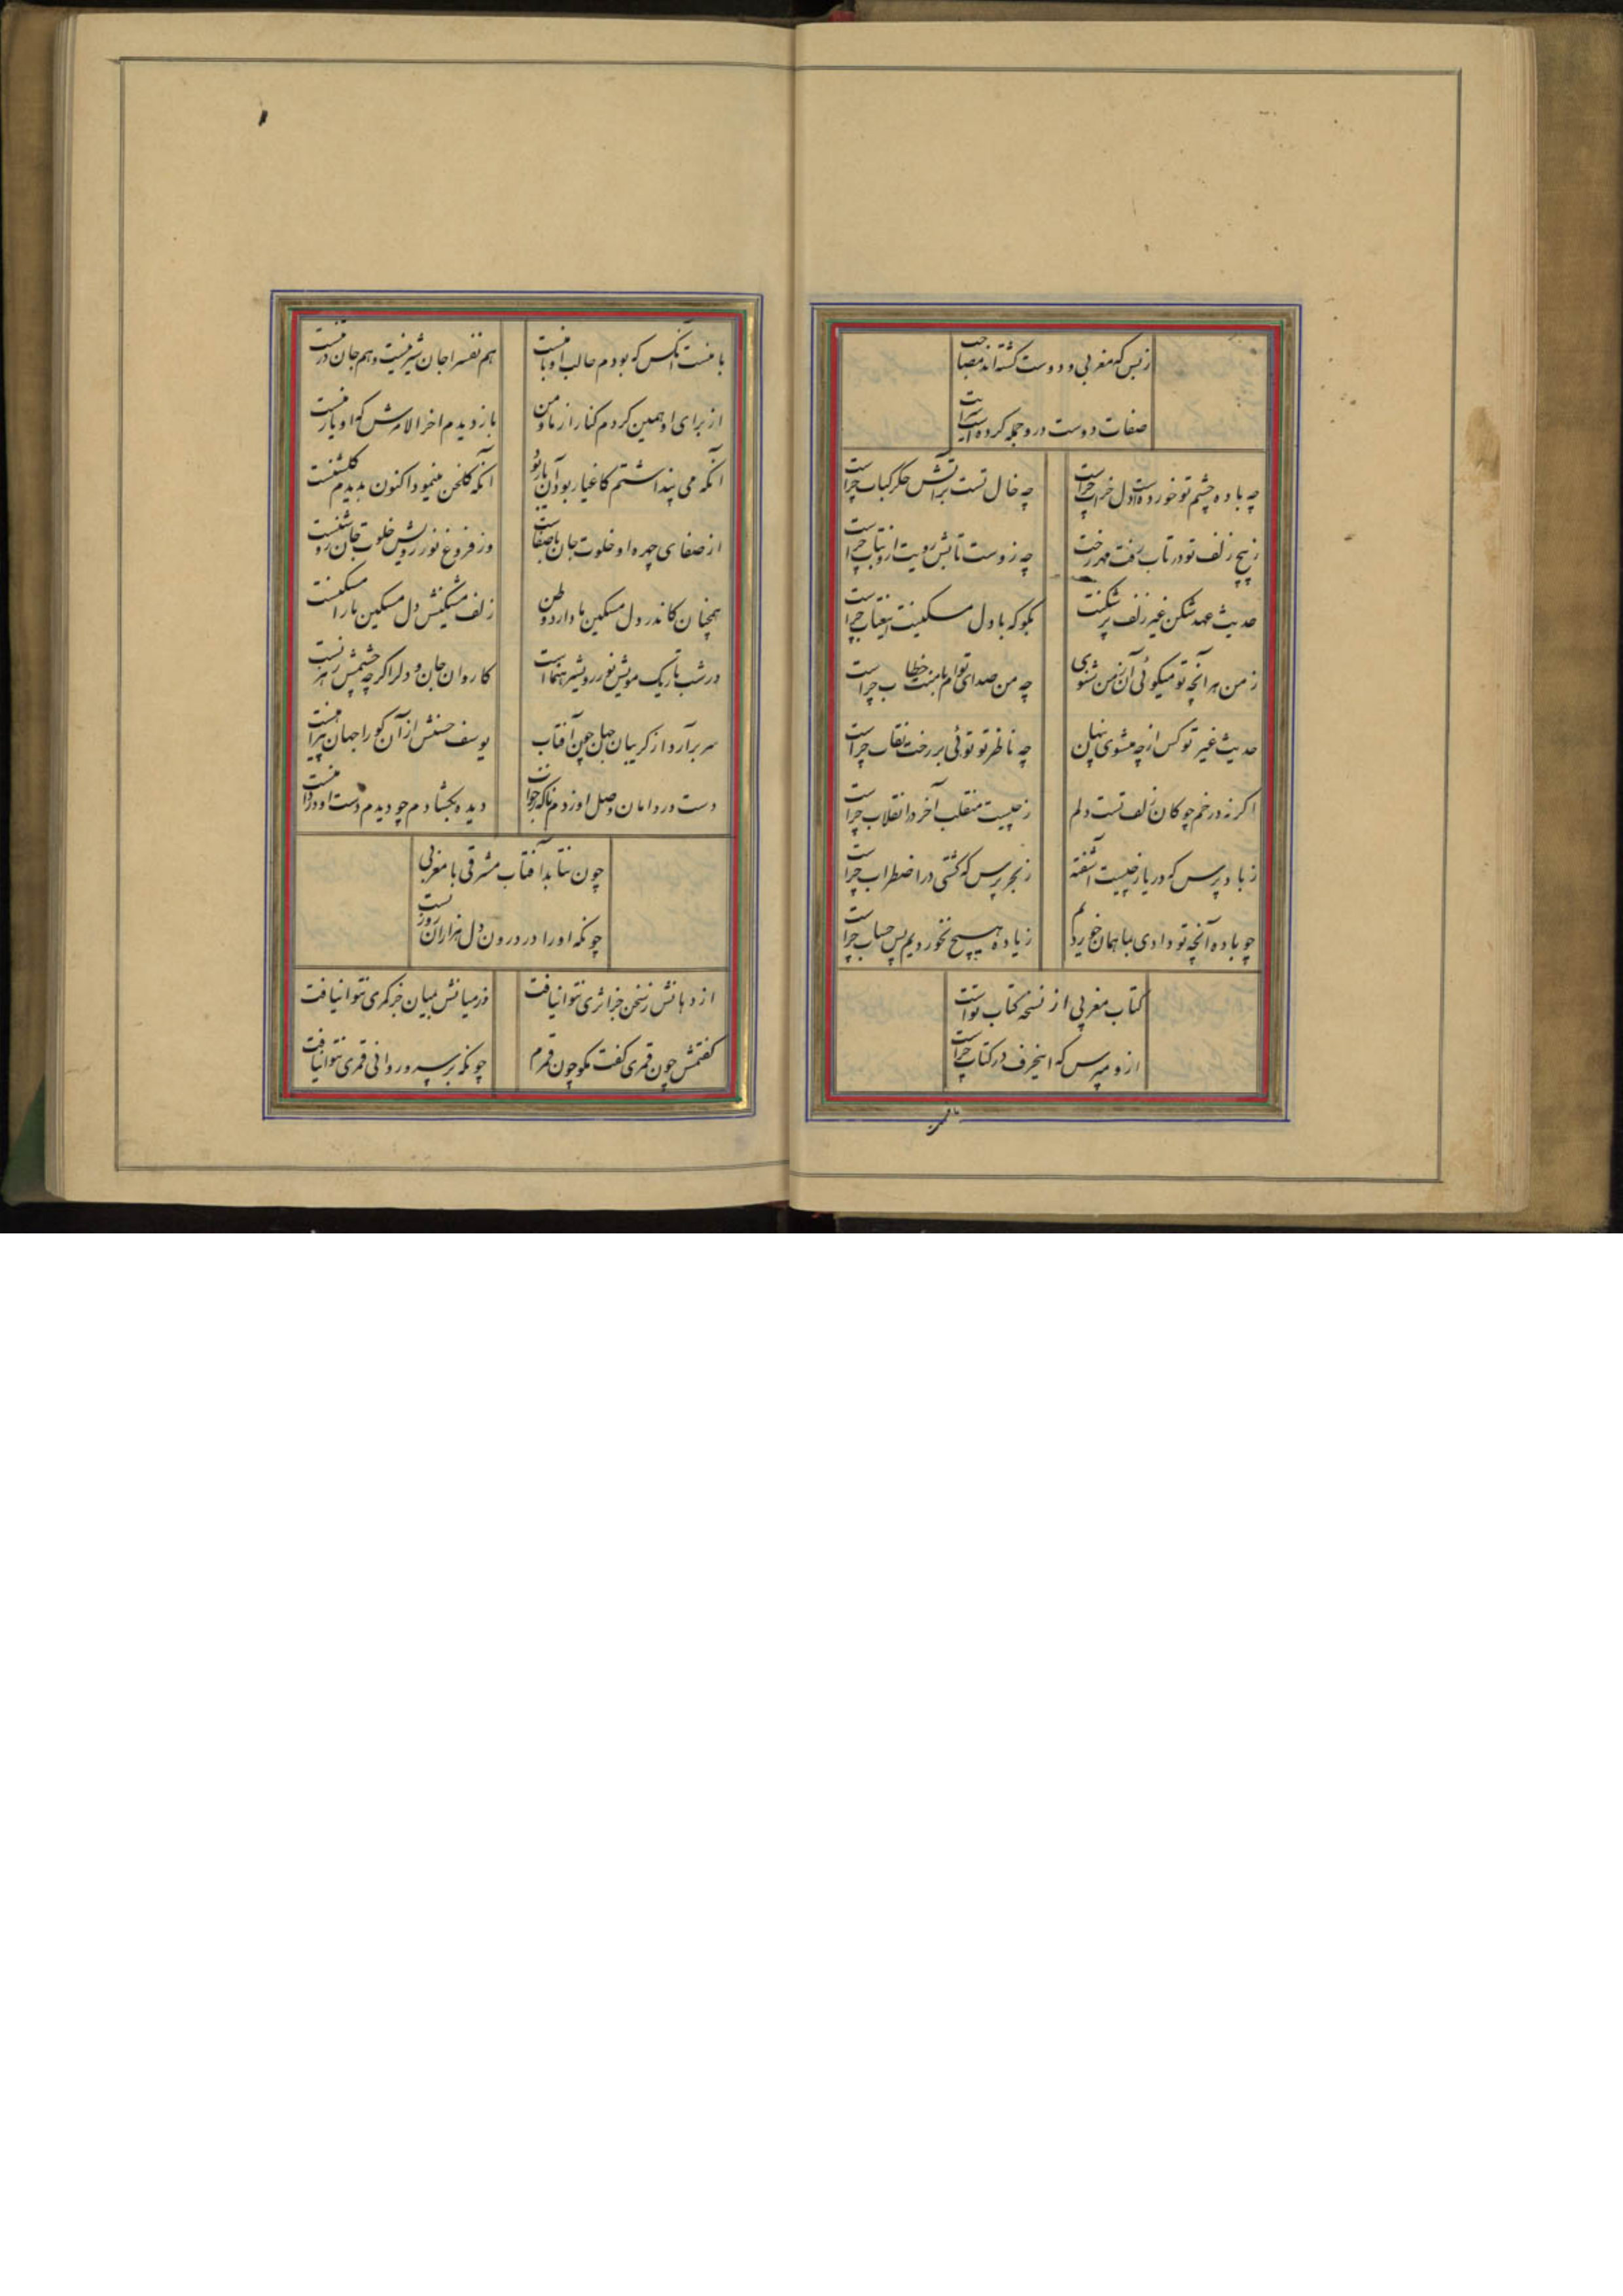 ز بس که مغربی و دوست گشته‌اند مصاحب
صفات دوست در و جمله کرده است سرایت
چه باده چشم تو خورده است دل خراب چراست
چه خال تست بر آتش جگر کباب چراست
ز پیچ زلف تو در تاب رفت مهر رخت
چه زوست تابش رویت ازو بتاب چراست
حدیث عهد شکن غیر زلف پر شکنت
بگو که با دل مسکینت این عتاب چراست
ز من هر آنچه تو میگوئی آن ز من شنوی
چه من صدای توام با منت خطاب چراست
حدیث غیر تو کس از چه مشنوی پنهان
چه ناظر تو توئی بر رخت نقاب چراست
اگر نه در خم چوکان زلف تست دلم
ز چیست منقلب آخر در انقلاب چراست
ز باد پرس که دریا ز چیست آشفته
ز بحر پرس که کشتی در اضطراب چراست
چو باده آنچه تو دادی بما همان خوردیم
زیاده هیچ نخوردیم پس حساب چراست
کتاب مغربی از نسخه کتاب تو است
ازو مپرس که اینحرف در کتاب چراست
با منست آنکس که بودم طالب او با منست
هم نفس را جان شیرینست و هم جان در تنست
از برای او همین کردم کنار از ما و من
باز دیدم اخر الامرش که او یار منست
آنکه می پنداشتم کاغیار بود آن یار بود
آنکه گلخن مینمود اکنون بدیدم گلشنست
از صفای چهره او خلوت جان با صفاست
وز فروغ نور رویش خلوت جان روشنست
همچنان کاندر دل مسکین ما دارد وطن
زلف مشکینش دل مسکین ما را مسکنست
در شب تاریک مویش نور رویش رهنماست
کاروان جان و دل را گر چه چشمش رهزنست
سر برآرد از گریبان جهان چون آفتاب
یوسف حسنش از آن کو را جهان پیراهنست
دست در دامان وصل او زدم ناگه بخواب
دیده بگشادم چو دیدم دست او در دامنست
چون نتابد آفتاب مشرقی با مغربی
چونکه او را در درون دل هزاران روزنست
از دهانش ز سخن جز اثری نتوان یافت
وز میانش بمیان جز کمری نتوان یافت
گفتمش چون قمری گفت مگو چون قمرم
چونکه بر سرو روانی قمری نتوان یافت